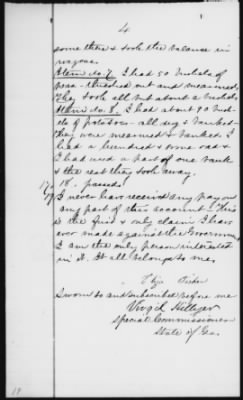 4
some there & took the balance in
wagons.
Item No. 7. I had 50 bushels of
peas - thrashed out and measured,
They took all but about 2 bushels,
Item No. 8. I had about 90 bush-
els of potatoes - all dug & banked -
they were measured & banked. I
had a hundred & some odd &
I had used a part of one bank
& the rest they took away.
17 & 18. passed.
19 I never have received any pay on
any part of this account. This
is the first & only claim I have
ever made against the Government
I am the only person interested
in it. It all belongs to me.
Sworn to and subscribed before me
Virgil Hillyer
Special Commissioner
State of Ga.